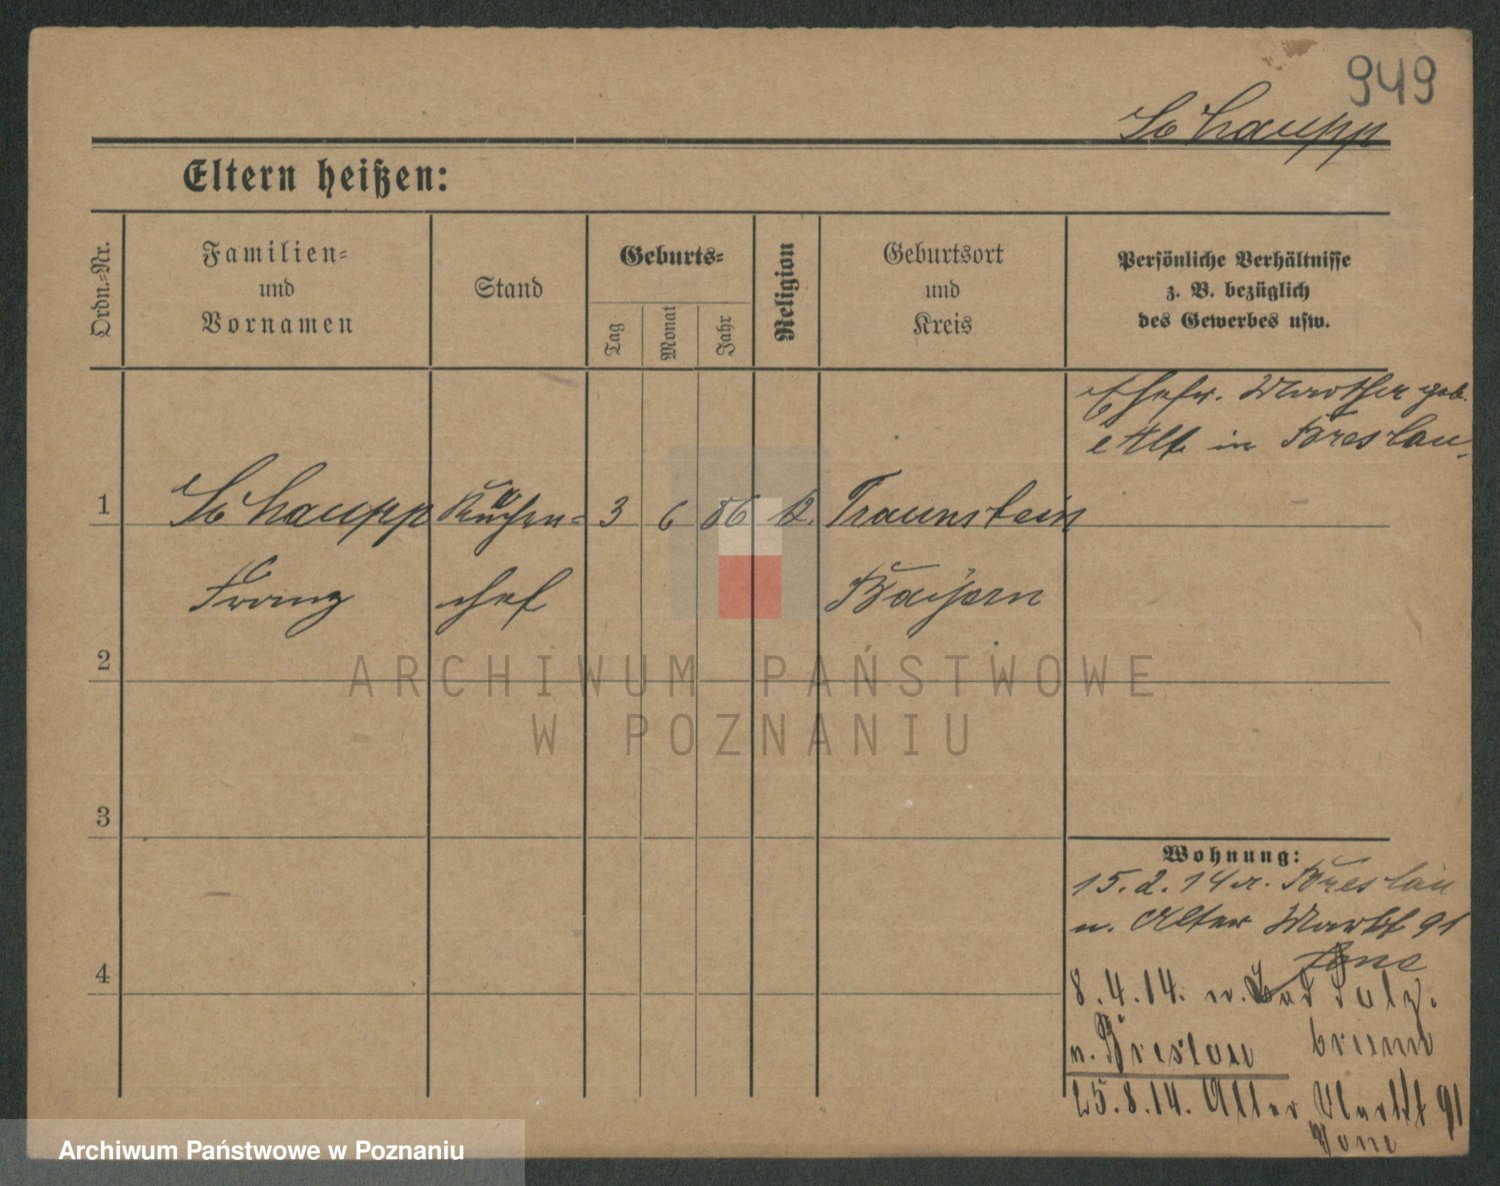 949
Schaupp
Eltern heißen:
Ordn.-Nr.
Familien-
und
Vornamen
Stand
Geburts-
Tag
Monat
Jahr
Religion
Geburtsort
und
Kreis
Persönliche Verhältnisse
z. B. bezüglich
des Gewerbes usw.
Ehefr. Marthe geb.
Alt in Breslau.
1 Schaupp Küchen- 3 6 86 k. Traunstein
Franz chef Baiern
2
3
4
ARCHIWUM PAŃSTWOWE
W POZNANIU
Wohnung:
15.2.14 v. Breslau
n. Alter Markt 91
8.4.14. v. Bad Salz-
n. Breslau brunn
25.8.14. Alter Markt 91
Archiwum Państwowe w Poznaniu